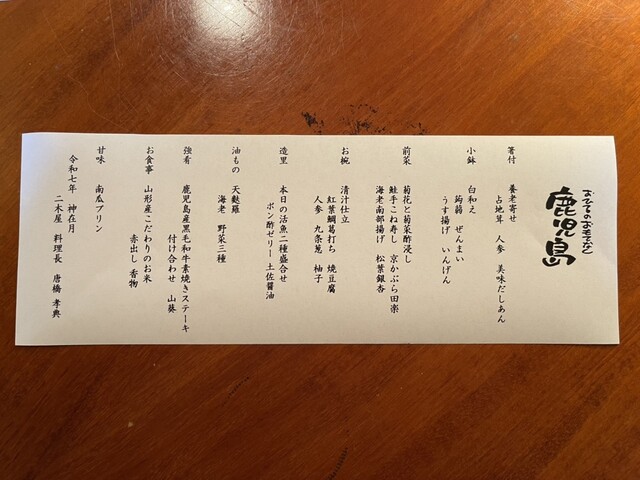 おひるのおもてなし
鹿児島
箸付　養老寄せ
占地茸　人参　美味だしあん
小鉢　白和え
蒟蒻　ぜんまい
うす揚げ　いんげん
前菜　菊花と菊菜酢浸し
鮭手こね寿し　京かぶら田楽
海老南部揚げ　松葉銀杏
お椀　清汁仕立
紅葉鯛葛打ち　焼豆腐
人参　九条葱　柚子
造里　本日の活魚二種盛合せ
ポン酢ゼリー　土佐醤油
油もの　天麩羅
海老　野菜三種
強肴　鹿児島産黒毛和牛素焼きステーキ
付け合わせ　山葵
お食事　山形産こだわりのお米
赤出し　香物
甘味　南瓜プリン
令和七年　神在月
二木屋　料理長　唐橋　孝典